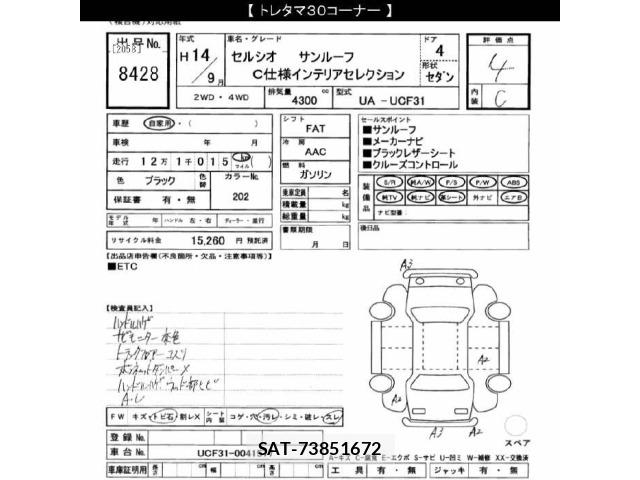 【 トレタマ30コーナー 】
(複合機)対応用紙
出品No.
[2058]
8428
年式
H 14
9月
車名・グレード
セルシオ サンルーフ
C仕様インテリアセレクション
ドア
4
形状
セダン
2WD・4WD
排気量
4300 cc
型式
UA -UCF31
評価点
4
内装
C
車歴 自家用・( )
車検 年 月
走行 12万1千015 km マイル ( )
色 ブラック
色替
カラーNo.
202
保証書 有・無
モデル年式 年 ハンドル 左・右 ディーラー・並行
リサイクル料金 15,260 円 預託済
シフト
FAT
冷房
AAC
燃料
ガソリン
乗車定員 名
積載量 kg
総重量 kg
書類期限
月 日
セールスポイント
■サンルーフ
■メーカーナビ
■ブラックレザーシート
■クルーズコントロール
装備品
S/R 純A/W P/S P/W ABS
純TV 純ナビ 革シート 外ナビ エアB
ナビ型番
後日品
【出品店申告欄(不良箇所・欠品・注意事項等)】
■ETC
【検査員記入】
ハンドルハゲ
A・レ
A3
A2
A2
A3
A2
スペア
FW キズ・トビ石・割レX
シート内装
コゲ・穴・汚レ・シミ・破レ・スレ
登録No.
車台No. UCF31-0041
SAT-73851672
車庫証明用 長さ cm 幅 cm 高さ cm
A-キズ E-エクボ S-サビ U-凹ミ W-補修 XX-交換済
工具 有・無 ジャッキ 有・無